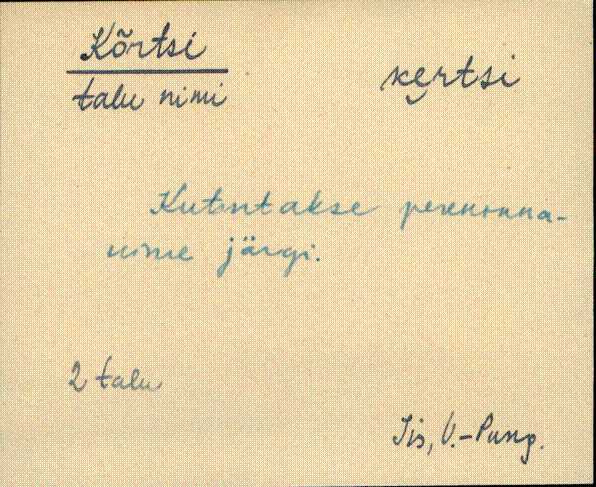 Kõrtsi
talu nimi
ke̮rtsi
Kutsutakse perekonna-
nime järgi.
2 talu
Jis, V.-Pung.